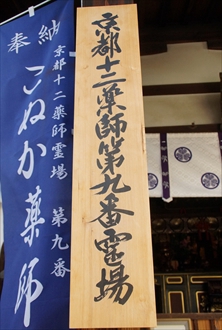 京都十二薬師第九番霊場
奉納
京都十二薬師霊場 第九番
こぬか薬師